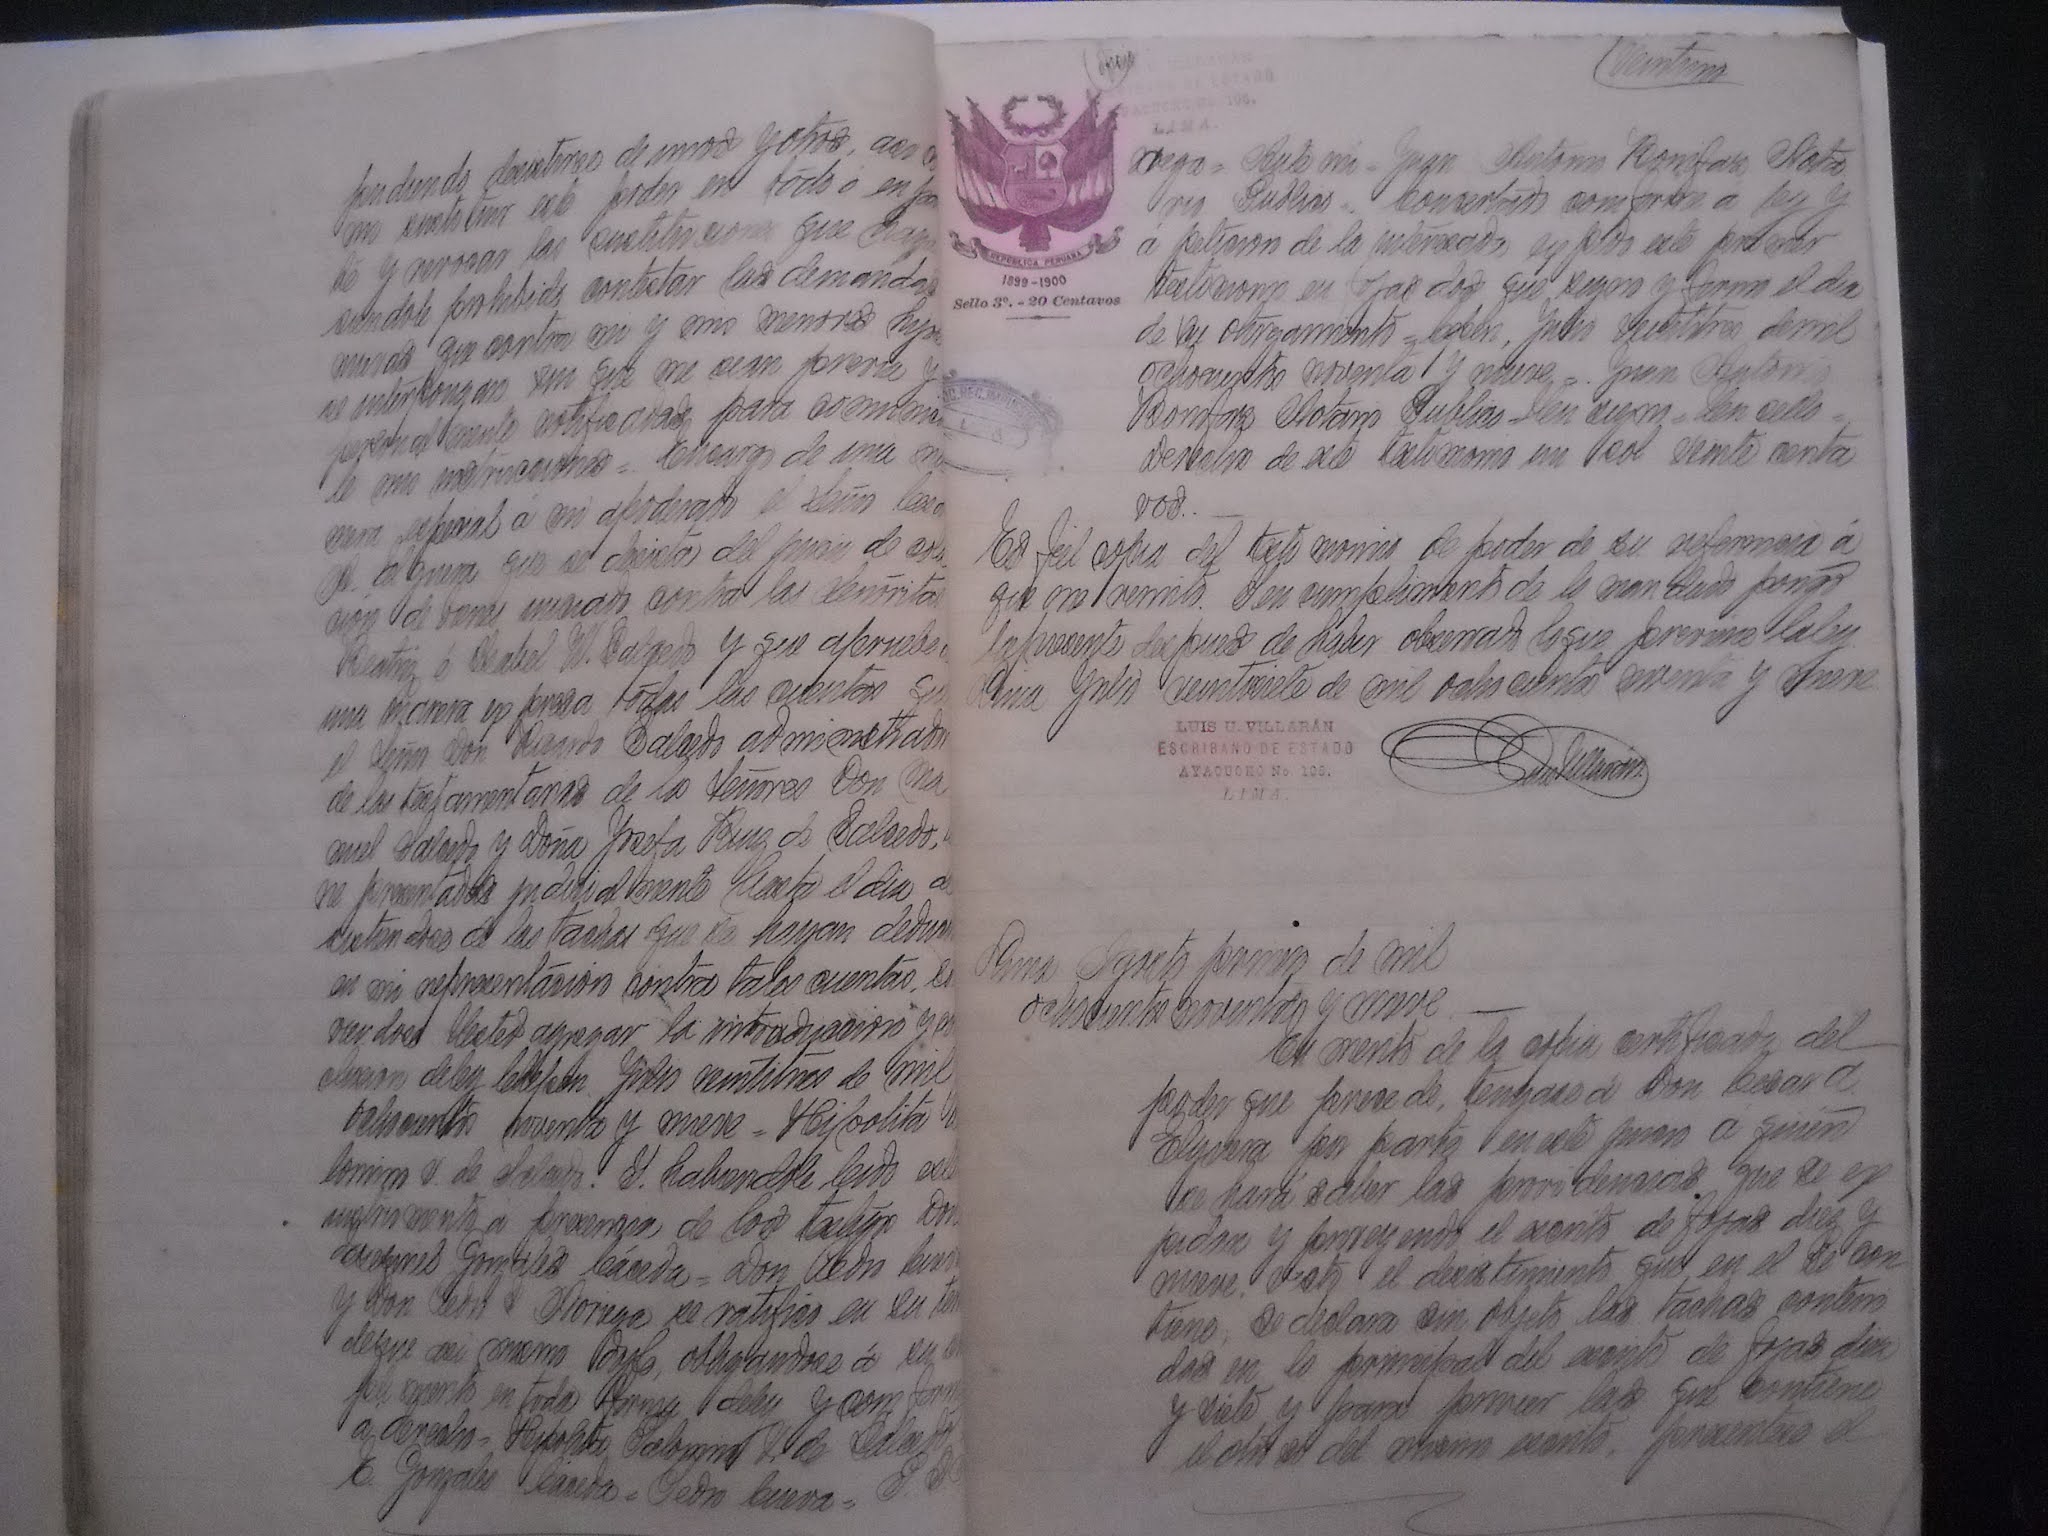 pudiendo desistirse de unos y otros, así co
mo sustituir este poder en todo ó en par
te y revocar las sustituciones que haga
siendole prohibido contestar las demandas
nuevas que contra mi y mis menores hijos
se interpongan sin que me sean previa y
personalmente notificadas, para comunicar
le mis instrucciones = Encargo de una ma
nera especial á mi apoderado el Señor Cesar
A. Elguera que se desista del juicio de
ción de iniciado contra las Señoritas
Beatriz é Isabel M. Salcedo y que apruebe de
una manera expresa todas las cuentas que
el Señor Don Ricardo Salcedo administrador
de las testamentarias de los Señores Don Ma
nuel Salcedo y Doña Josefa Ruiz de Salcedo,
ne presentadas judicialmente hasta el dia
de las tachas que se hayan deducido
en mi representación contra tales cuentas,
Usted agregar la introducción y con
clusion de ley Julio veintitres de mil
ochocientos noventa y nueve = Hipolita
V. de Salcedo. Y habiendole leido este
instrumento a presencia de los testigos Don
Gonzales Cáceda = Don Pedro Cueva
y Don Noriega se ratificó en su
mismo obligandose á su
en toda forma de ley y conforme
a derecho = Hipolita Palomino V. de Salcedo
E. Gonzales Cáceda = Pedro Cueva =
Veintiuno
LIMA.
REPUBLICA PERUANA
1899-1900
Sello 3º. - 20 Centavos
riega = Ante mi = Juan Antonio Romifas, Nota
rio Publico = Concertado conforme á ley y
á peticion de la interesada expido este primer
testimonio en fojas dos que signo y firmo el dia
de su otorgamiento = Julio veintitres de mil
ochocientos noventa y nueve = Juan Antonio
Notario Publico = Un signo = Un sello =
Derechos de este testimonio un sol veinte centa
vos.. —
Es fiel copia del testimonio de poder de su referencia á
que me remito. Y en cumplimiento de lo mandado pongo
la presente despues de haber observado lo que previene la ley.
Lima Julio veintisiete de mil ochocientos noventa y nueve
LUIS U. VILLARÁN
ESCRIBANO DE ESTADO
AYACUCHO No. 106.
LIMA.
Lima Agosto primero de mil
ochocientos noventa y nueve. —
En merito de la copia certificada del
poder que precede, tengase á Don Cesar A
Elguera por parte en este juicio á quien
se hará saber las providencias que se ex
pidan y proveyendo el escrito de fojas diez y
nueve: visto el desistimiento que en el se con
tiene, se declara sin objeto las tachas conteni
das en lo principal del escrito de fojas diez
y siete y para proveer las que contiene
el otro si del mismo escrito, presentese el